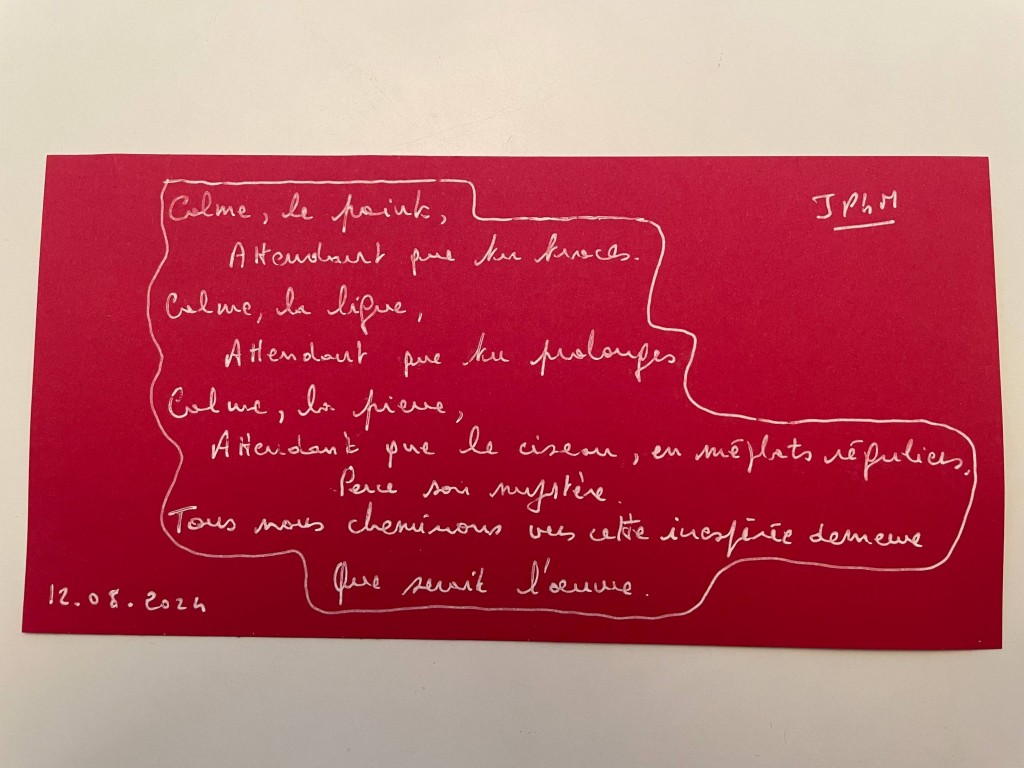 JPhM
Calme, le point,
Attendant que tu traces.
Calme, la ligne,
Attendant que tu prolonges
Calme, la pierre,
Attendant que le ciseau, en méplats réguliers,
Perce son mystère.
Tous nous cheminons vers cette inespérée demeure
Que serait l'œuvre.
12.08.2024